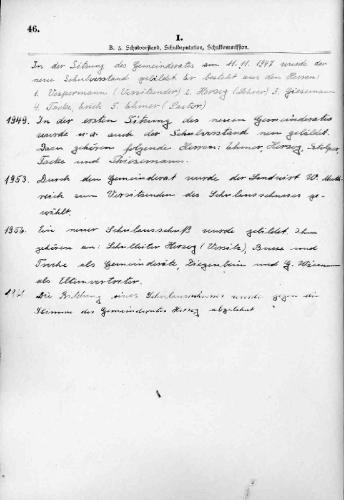 46.
I.
B. 5. Schulvorstand, Schuldeputation, Schulkommission.
In der Sitzung des Gemeinderates am 11.11.1947 wurde der
neue Schulvorstand gebildet. Er besteht aus den Herren:
1. Vespermann (Vorsitzender) 2. Herzog (Lehrer) 3. Giesemann
4. Tacke, Erich 5. Ehmer (Pastor)
1949. In der ersten Sitzung des neuen Gemeinderates
wurde u.a. auch der Schulvorstand neu gebildet.
Dazu gehören folgende Herren: Ehmer, Herzog,
Tacke und
1953. Durch den Gemeinderat wurde der Landwirt W.
zum Vorsitzenden des Schulausschusses ge-
wählt.
Ein neuer Schulausschuß wurde gebildet. Ihm
gehören an: Schulleiter Herzog (Vorsitz), und
als Gemeinderäte, Ziegenbein und G.
als Elternvertreter.
Die Bildung eines Schulausschusses wurde gegen die
Stimme des Gemeinderates Herzog abgelehnt